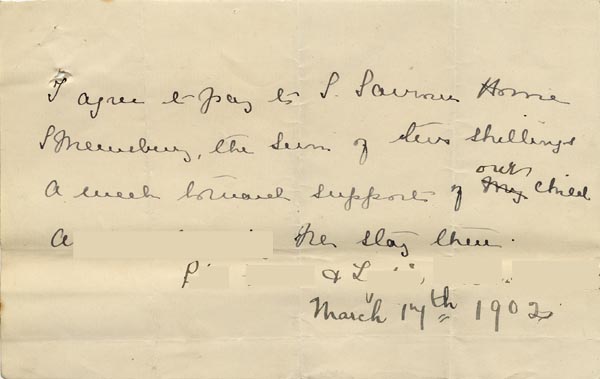 I agree to pay to S. Saviours Home
Shrewsbury, the sum of two shillings
a week towards support of our child
A her stay there.
P & L
March 17th 1902